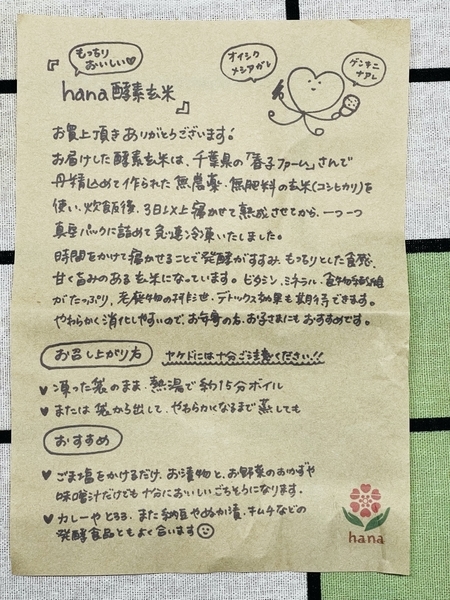 もっちり
おいしい♡
『hana酵素玄米』
オイシク
メシアガレ
ゲンキニ
ナアレ
お買上頂きありがとうございます!
お届けした酵素玄米は、千葉県の「春子ファーム」さんで
丹精込めて作られた無農薬・無肥料の玄米(コシヒカリ)を
使い、炊飯後、3日以上寝かせて熟成させてから、一つ一つ
真空パックに詰めて急速冷凍いたしました。
時間をかけて寝かせることで発酵がすすみ、もっちりとした食感、
甘く旨みのある玄米になっています。ビタミン、ミネラル、食物繊維
がたっぷり、老廃物の排出、デトックス効果も期待できます。
やわらかく消化しやすいので、お年寄の方、お子さまにもおすすめです。
お召し上がり方 ヤケドには十分ご注意ください!!
♥ 凍った袋のまま、熱湯で約15分ボイル
♥ または袋から出して、やわらかくなるまで蒸しても
おすすめ
♥ ごま塩をかけるだけ、お漬物と、お野菜のおかずや
味噌汁だけでも十分においしいごちそうになります。
♥ カレーやとろろ、また納豆やぬか漬、キムチなどの
発酵食品ともよく合います
hana